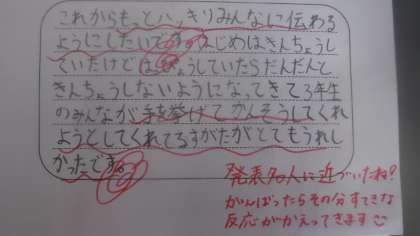 これからもっとハッキりみんなに伝わる
ようにしたいです。はじめはきんちょうし
ていたけどはっぴょうしていたらだんだんと
きんちょうしないようになってきて3年生
のみんなが手を挙げてかんそうしてくれ
ようとしてくれてるすがたがとてもうれし
かったです。
発表名人に近づいたね!
がんばったらその分すてきな
反応がかえってきます